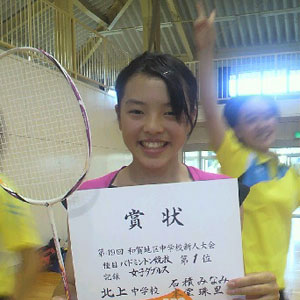 賞状
第49回 和賀地区中学校新人大会
種目 バドミントン競技 第1位
記録 女子ダブルス
石積みなみ
北上中学校
珠里